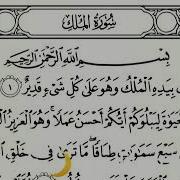 سُورَةُ المُلْكِ
بِسْمِ ٱللَّهِ ٱلرَّحْمَٰنِ ٱلرَّحِيمِ
بِيَدِهِ ٱلْمُلْكُ وَهُوَ عَلَىٰ كُلِّ شَىْءٍ قَدِيرٌ ١
حَيَوٰةَ لِيَبْلُوَكُمْ أَيُّكُمْ أَحْسَنُ عَمَلًا ۚ وَهُوَ ٱلْعَزِيزُ
سَبْعَ سَمَٰوَٰتٍ طِبَاقًا ۖ مَّا تَرَىٰ فِى خَلْقِ